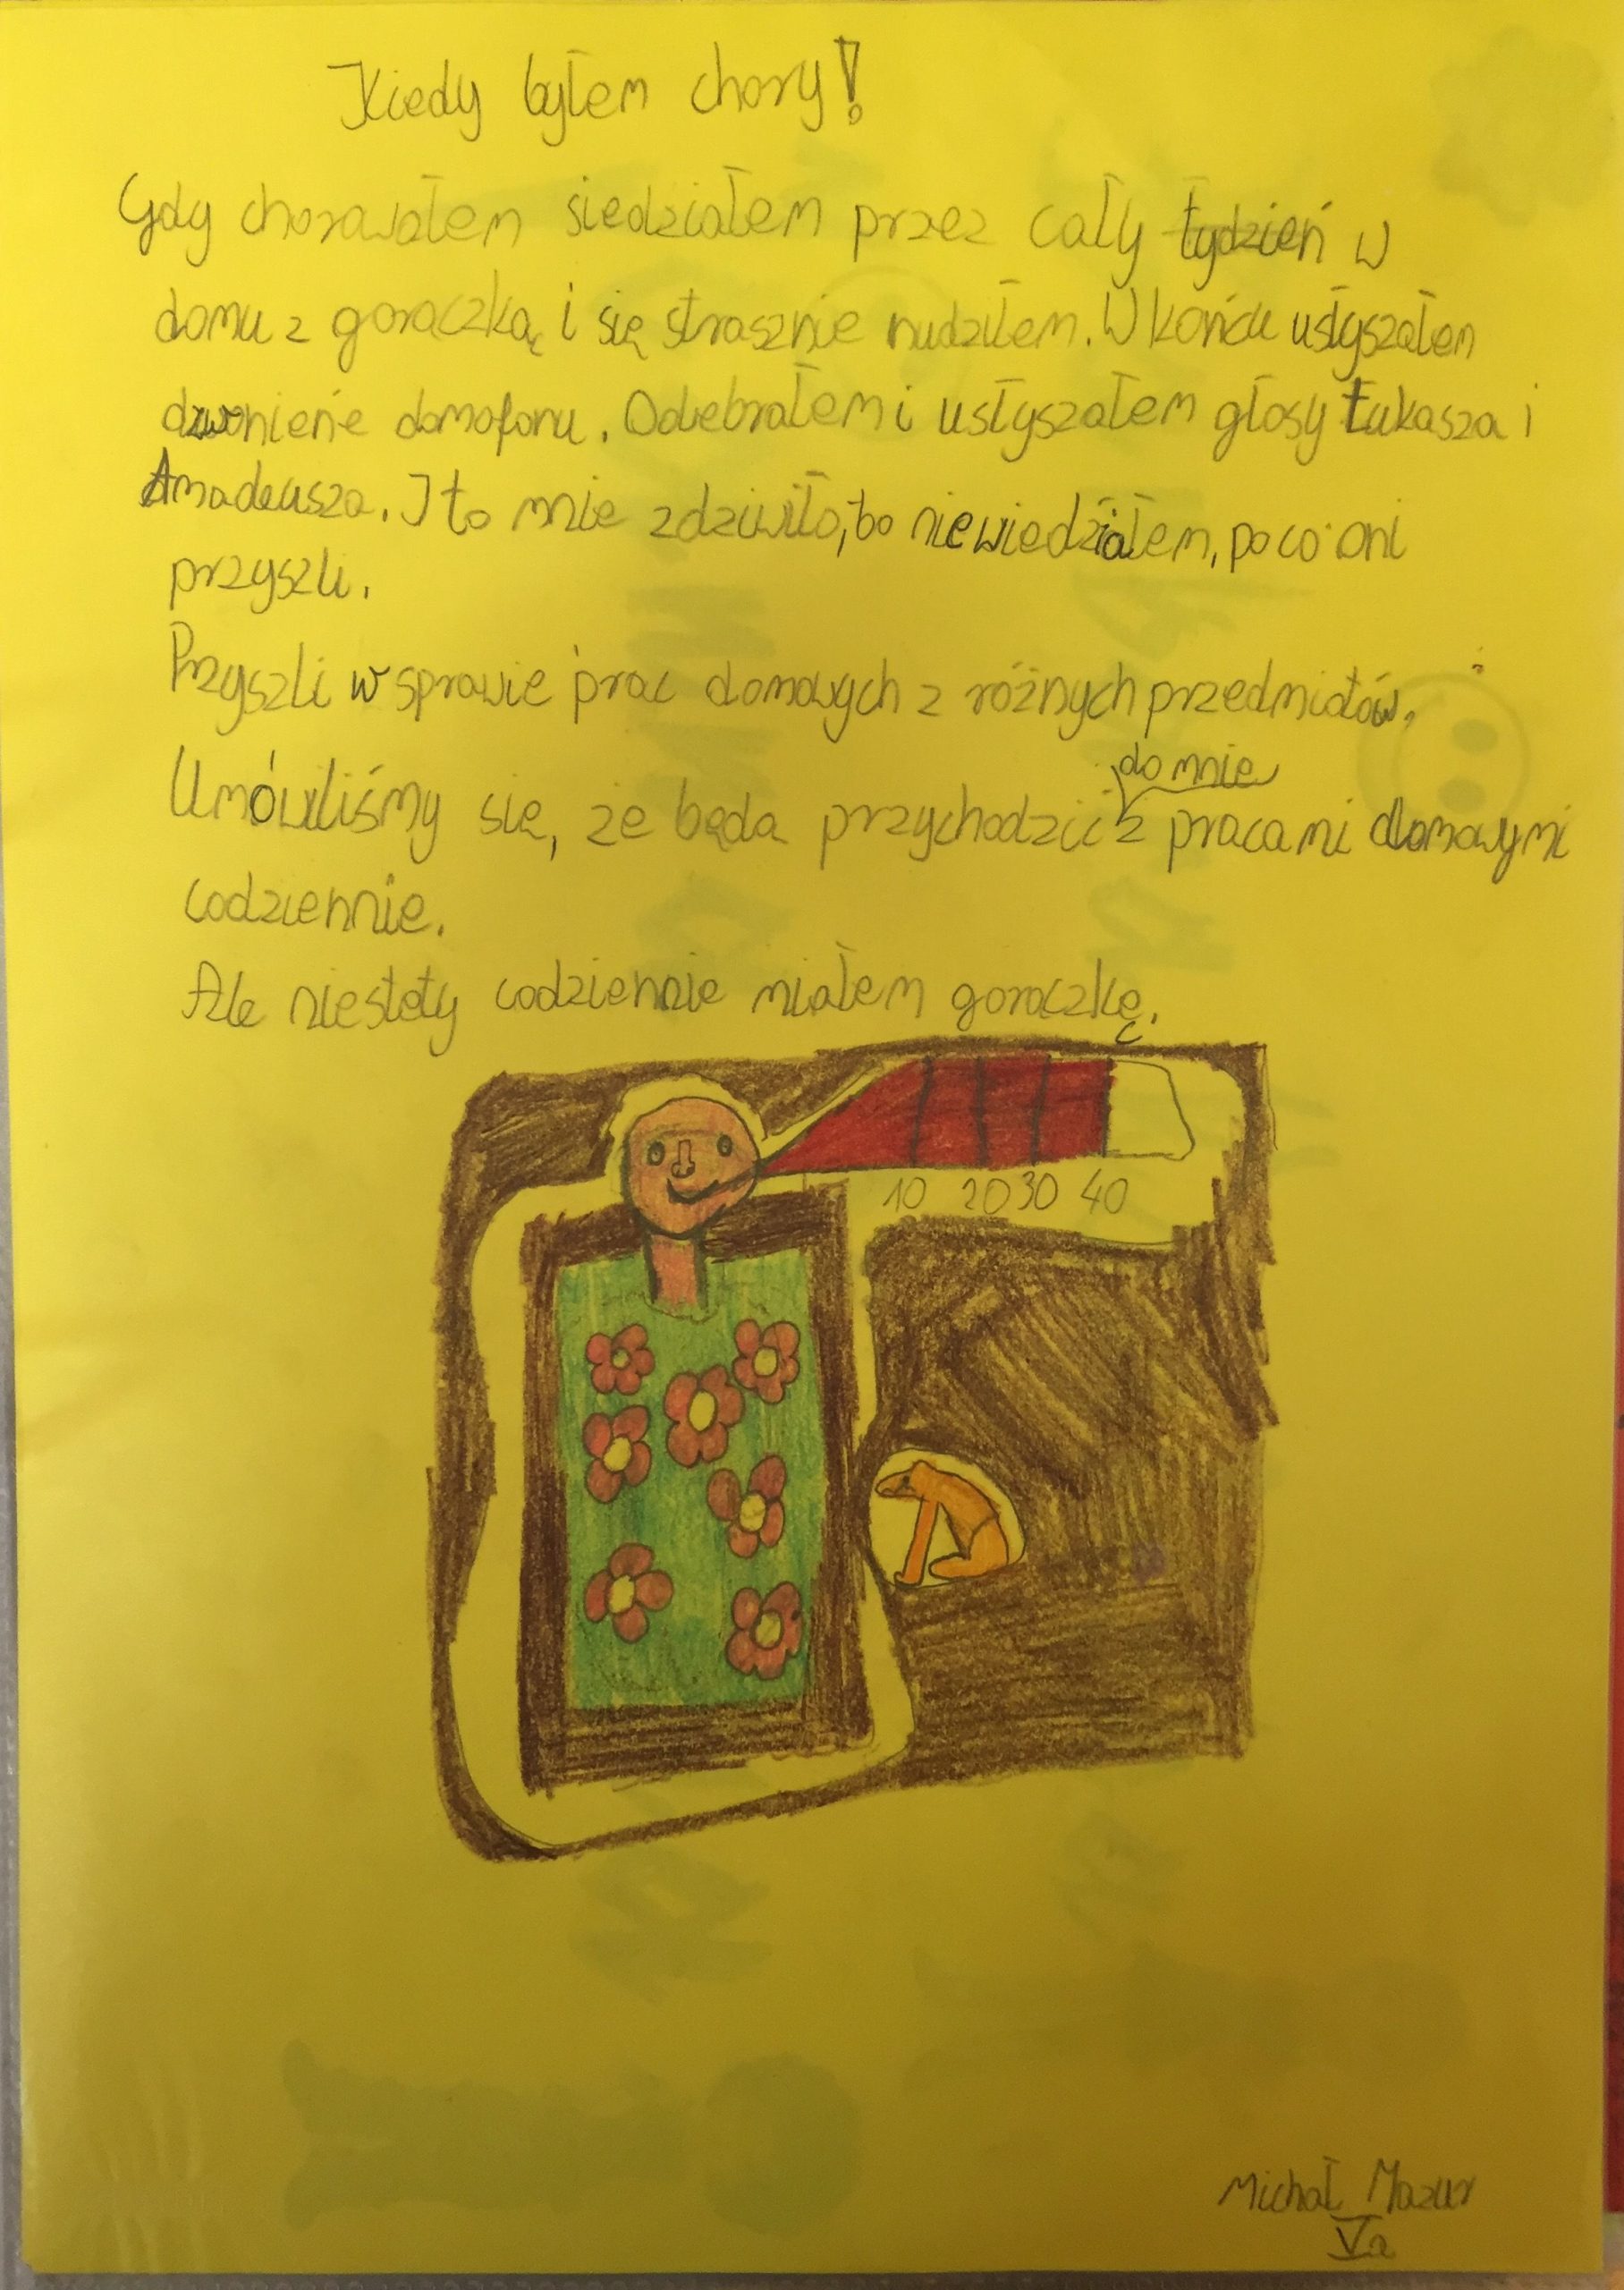 Kiedy byłem chory!
Gdy chorowałem siedziałem przez cały tydzień w
domu z gorączką i się strasznie nudziłem. W końcu usłyszałem
dzwonienie domofonu. Odebrałem i usłyszałem głosy Łukasza i
Amadeusza. I to mnie zdziwiło, bo niewiedziałem, po co oni
przyszli.
Przyszli w sprawie prac domowych z różnych przedmiotów.
do mnie
Umówiliśmy się, że będą przychodzić z pracami domowymi
codziennie.
Ale niestety codziennie miałem gorączkę.
10 20 30 40
Michał Mazur
Va